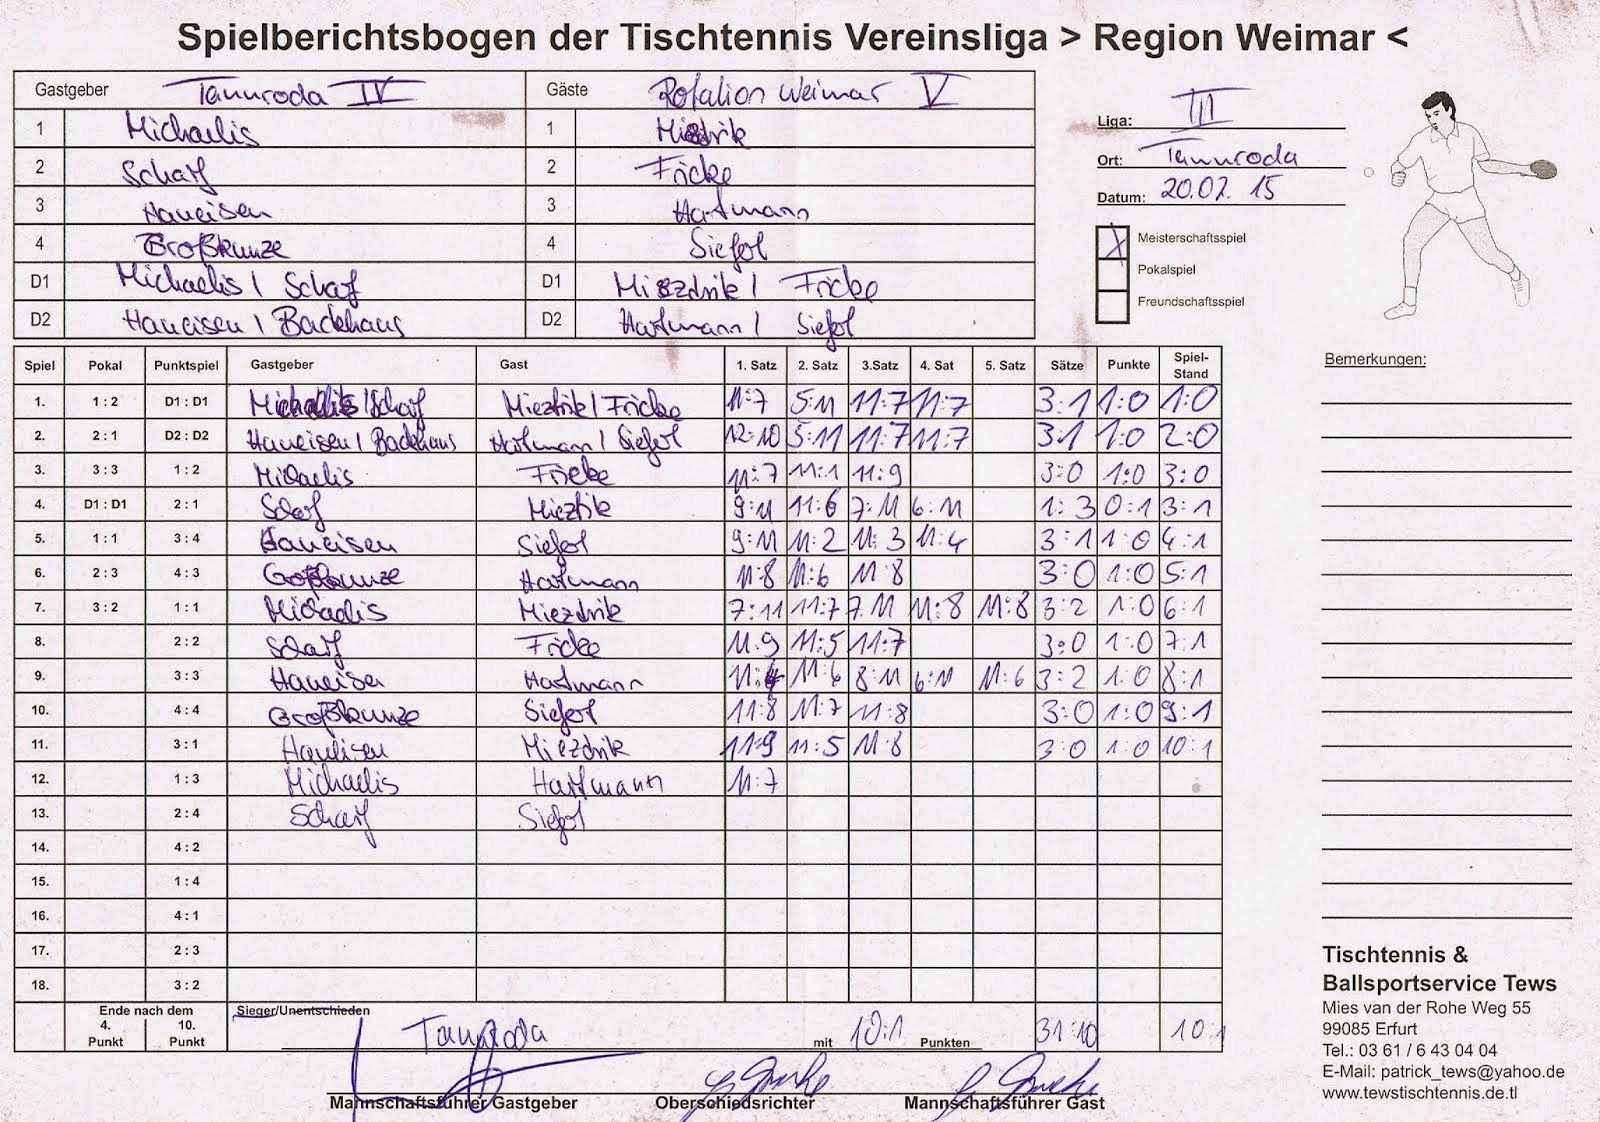 Spielberichtsbogen der Tischtennis Vereinsliga > Region Weimar <
Gastgeber Tannroda IV Gäste Rotation Weimar V
1 Michaelis 1 Miezdrik
2 Scharf 2 Fricke
3 Haueisen 3 Hartmann
4 Großkunze 4 Siefert
D1 Michaelis / Scharf D1 Miezdrik / Fricke
D2 Haueisen / Backhaus D2 Hartmann / Siefert
Liga: III
Ort: Tannroda
Datum: 20.02.15
X Meisterschaftsspiel
Pokalspiel
Freundschaftsspiel
Bemerkungen:
Spiel Pokal Punktspiel Gastgeber Gast 1. Satz 2. Satz 3.Satz 4. Sat 5. Satz Sätze Punkte Spiel-Stand
1. 1 : 2 D1 : D1 Michaelis / Scharf Miezdrik / Fricke 11:7 5:11 11:7 11:7 3:1 1:0 1:0
2. 2 : 1 D2 : D2 Haueisen / Backhaus Hartmann / Siefert 12:10 5:11 11:7 11:7 3:1 1:0 2:0
3. 3 : 3 1 : 2 Michaelis Fricke 11:7 11:1 11:9 3:0 1:0 3:0
4. D1 : D1 2 : 1 Scharf Miezdrik 9:11 11:6 7:11 6:11 1:3 0:1 3:1
5. 1 : 1 3 : 4 Haueisen Siefert 9:11 11:2 11:3 11:4 3:1 1:0 4:1
6. 2 : 3 4 : 3 Großkunze Hartmann 11:8 11:6 11:8 3:0 1:0 5:1
7. 3 : 2 1 : 1 Michaelis Miezdrik 7:11 11:7 7:11 11:8 11:8 3:2 1:0 6:1
8. 2 : 2 Scharf Fricke 11:9 11:5 11:7 3:0 1:0 7:1
9. 3 : 3 Haueisen Hartmann 11:4 11:6 8:11 6:11 11:6 3:2 1:0 8:1
10. 4 : 4 Großkunze Siefert 11:8 11:7 11:8 3:0 1:0 9:1
11. 3 : 1 Haueisen Miezdrik 11:9 11:5 11:8 3:0 1:0 10:1
12. 1 : 3 Michaelis Hartmann 11:7
13. 2 : 4 Scharf Siefert
14. 4 : 2
15. 1 : 4
16. 4 : 1
17. 2 : 3
18. 3 : 2
Ende nach dem Sieger/Unentschieden
4. Punkt 10. Punkt Tannroda mit 10:1 Punkten 31:10 10:1
Mannschaftsführer Gastgeber Oberschiedsrichter Mannschaftsführer Gast
Tischtennis &
Ballsportservice Tews
Mies van der Rohe Weg 55
99085 Erfurt
Tel.: 03 61 / 6 43 04 04
E-Mail: patrick_tews@yahoo.de
www.tewstischtennis.de.tl